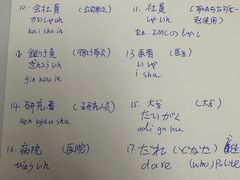 10. 会社員 (公司职员)
かいしゃいん
kai sha in
11. 社員
しゃいん
12. 銀行員 (银行职员)
ぎんこういん
gin kou in
13. 医者 (医生)
いしゃ
i sha
14. 研究者 (研究人员)
けんきゅうしゃ
ken kyuu sha
15. 大学 (大学)
だいがく
dai ga ku
16 病院 (医院)
びょういん
17. だれ (どなた)
dare (who) Polite